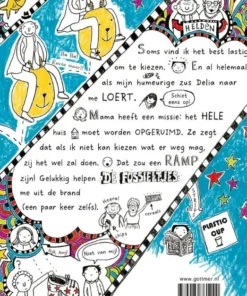 HELDEN
Soms vind ik het best lastig
om te kiezen. En al helemaal
als mijn humeurige zus Delia naar
me LOERT.
Schiet
eens op!
Mama heeft een missie: het HELE
huis moet worden OPGERUIMD. Ze zegt
dat als ik niet kan kiezen wat er weg mag,
zij het wel zal doen. Dat zou een RAMP
zijn! Gelukkig helpen DE FOSSIELTJES
me uit de brand
(een paar keer zelfs).
Niet van mij
PLASTIC
CUP
www.gottmer.nl